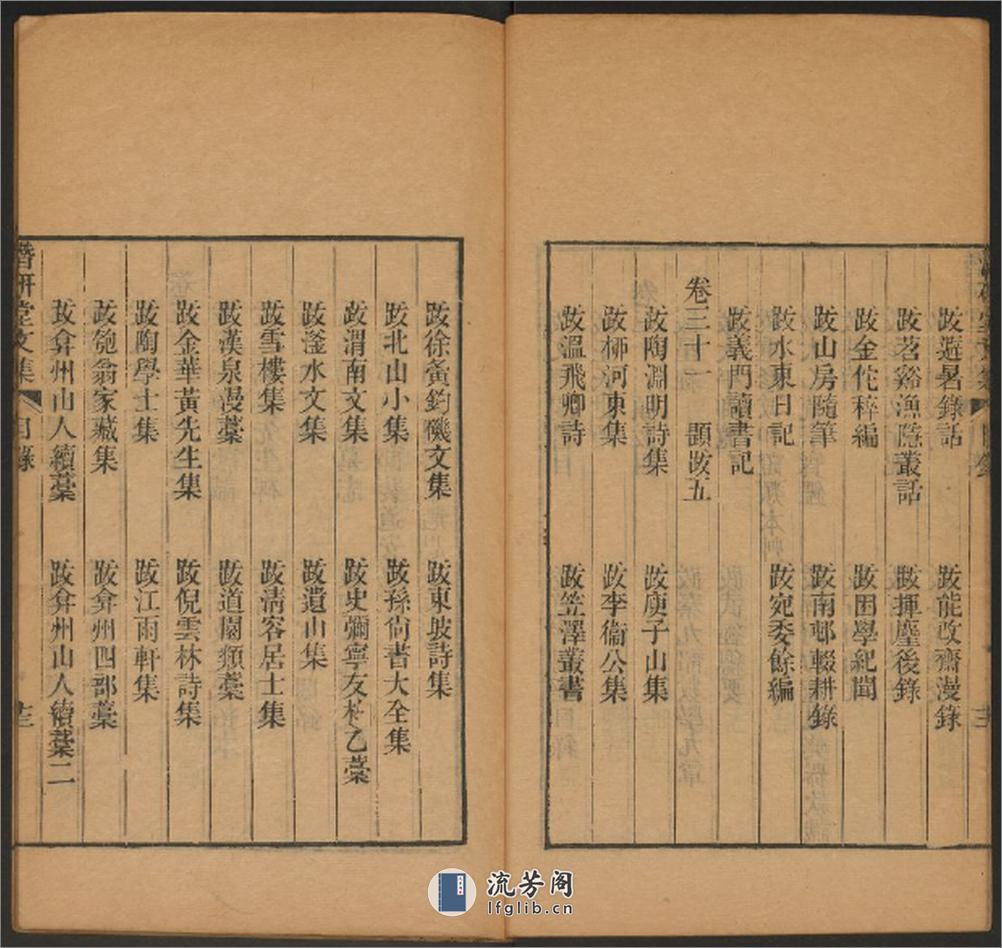 跋避暑錄話　跋能改齋漫錄
跋苕谿漁隱叢話　跋揮麈後錄
跋金佗稡編　跋困學紀聞
跋山房隨筆　跋南邨輟耕錄
跋水東日記　跋宛委餘編
跋義門讀書記
卷三十一　題跋五
跋陶淵明詩集　跋庾子山集
跋柳河東集　跋李衞公集
跋溫飛卿詩　跋笠澤叢書
跋徐夤釣磯文集　跋東坡詩集
跋北山小集　跋孫尙書大全集
跋渭南文集　跋史彌寧友林乙藁
跋滏水文集　跋遺山集
跋雪樓集　跋清容居士集
跋漢泉漫藁　跋道園類藁
跋金華黃先生集　跋倪雲林詩集
跋陶學士集　跋江雨軒集
跋匏翁家藏集　跋弇州四部藁
跋弇州山人續藁　跋弇州山人續藁二
潛研堂文集　目錄
流芳阁
lfglib.cn